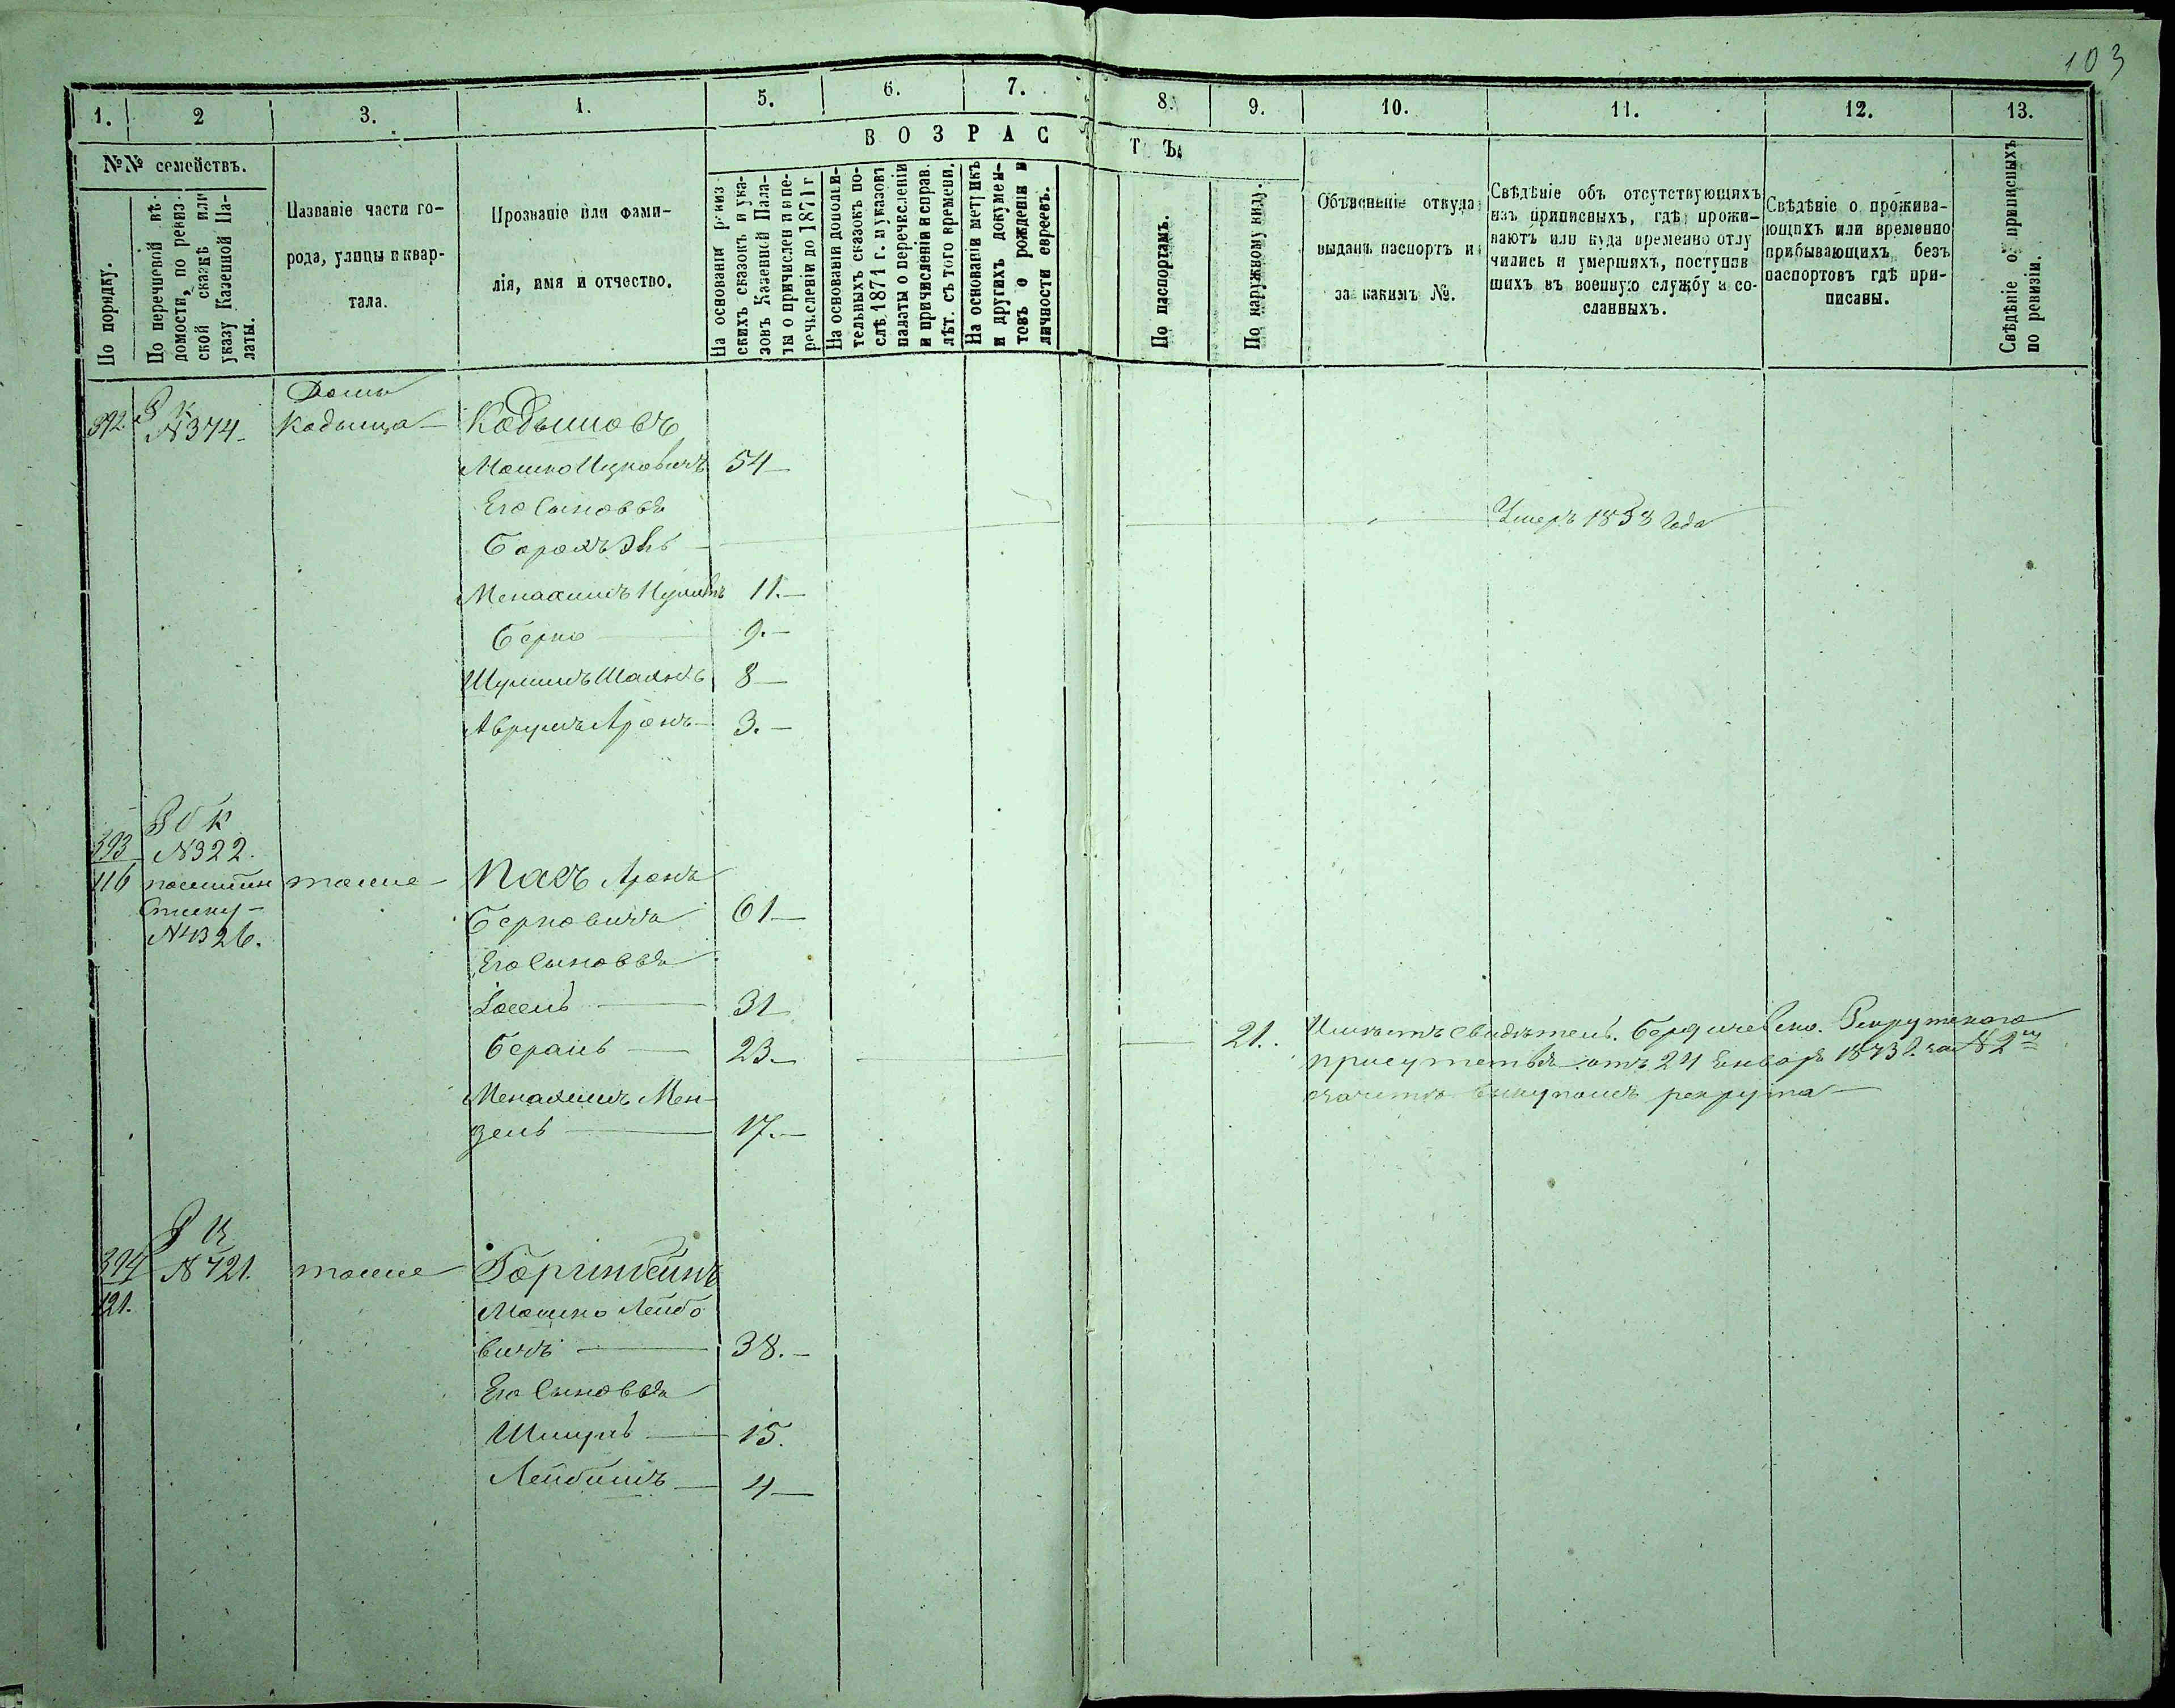 103
1. 2 3. 4. 5. 6. 7. 8. 9. 10. 11. 12. 13.
ВОЗРАСТЪ.
№№ семействъ.
По порядку.
По перечневой вѣ-
домости, по ревиз-
ской сказкѣ или
указу Казенной Па-
латы.
Названіе части го-
рода, улицы и квар-
тала.
Прозваніе или фами-
лія, имя и отчество.
На основаніи ревиз
скихъ сказокъ и ука-
зовъ Казенной Пала-
ты о причислен и и пе-
речисленіи до 1871 г.
На основаніи дополни-
тельныхъ сказокъ по-
слѣ 1871 г. и указовъ
палаты о перечисленіи
и причисленіи и справ.
лѣт. съ того времени.
На основаніи метрикъ
и другихъ докумен-
товъ о рожденіи и
личности евреевъ.
По паспортамъ.
По наружному виду.
Объясненіе откуда
выданъ паспортъ и
за какимъ №.
Свѣдѣніе объ отсутствующихъ
изъ приписныхъ, гдѣ прожи-
ваютъ или куда временно отлу
чились и умершихъ, поступив
шихъ въ военную службу и со-
сланныхъ.
Свѣдѣніе о прожива-
ющихъ или временно
прибывающихъ безъ
паспортовъ гдѣ при-
писаны.
Свѣдѣніе о приписныхъ
по ревизіи.
Домъ
392. Р К
№374 Кадыша Кадышовъ
Мошко Ицковичъ 54
Его Сыновья
Борохъ Умеръ 1853 Года
Менахимъ 11.
Берко 9.
Шулимъ 8
Аврумъ Аронъ 3.
Р О К
393 №322.
116 тоже Пакъ Аронъ
Берковичъ 61
№4326.
Его Сыновья
Іосель 31
Бераль 23. 21. Имѣетъ свидѣтель. Бердичевско. Рекрутскаго
присутствія отъ 24 Января 1873 г. за №2
Менахимъ Мен- зачетъ выкупомъ рекрута
дель 17.
Р К
394 №721. тоже Горинштейнъ
121. Мошко Лейбо
вичъ 38.
Его Сыновья
Шмуль 15.
Лейбишъ 4